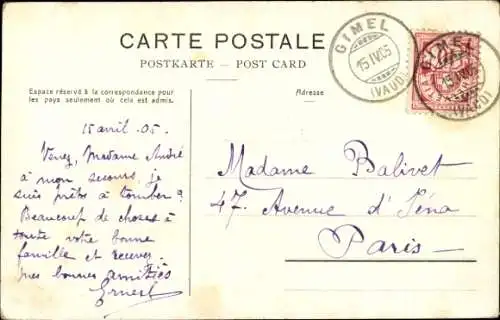 CARTE POSTALE
POSTKARTE – POST CARD
Espace réservé à la correspondance pour
les pays seulement où cela est admis.
Adresse
GIMEL
15 IV 05
(VAUD)
GIMEL
(VAUD)
15 avril . 05.
Venez, Madame André
à mon secours, je
suis prêts à tomber ?
Beaucoup de choses à
toute votre bonne
famille et recevez
mes bonnes amitiés
Ernest
Madame Balivet
47. Avenue d'Iéna
Paris